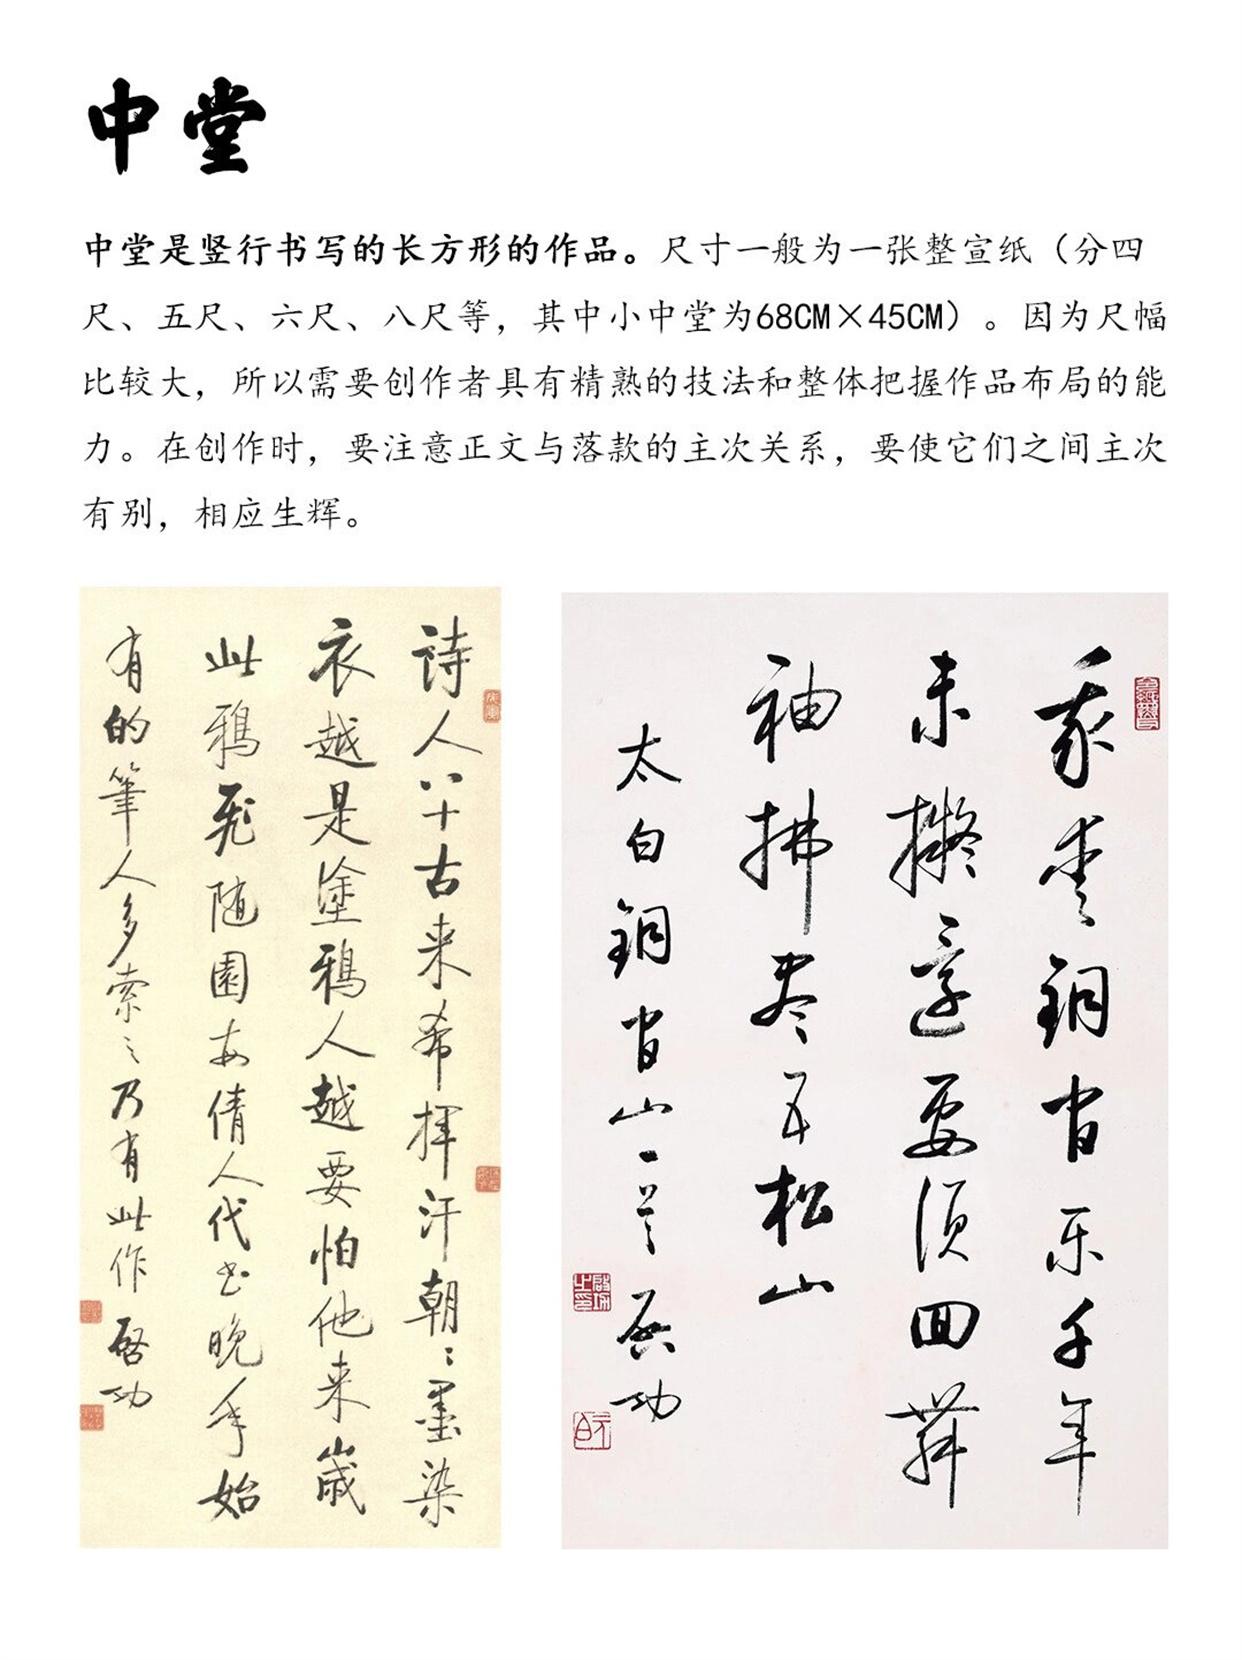 中堂
中堂是竖行书写的长方形的作品。尺寸一般为一张整宣纸（分四
尺、五尺、六尺、八尺等，其中小中堂为68CM×45CM）。因为尺幅
比较大，所以需要创作者具有精熟的技法和整体把握作品布局的能
力。在创作时，要注意正文与落款的主次关系，要使它们之间主次
有别，相应生辉。
詩人八十古来希揮汗朝〻墨染
衣越是塗鴉人越要怕他来歲
此鴉飛随園每倩人代书晚年始
有的筆人多索之乃有此作 启功
我爱铜官乐千年
未擬還要须回舞
袖拂尽五松山
太白铜官山一首 启功